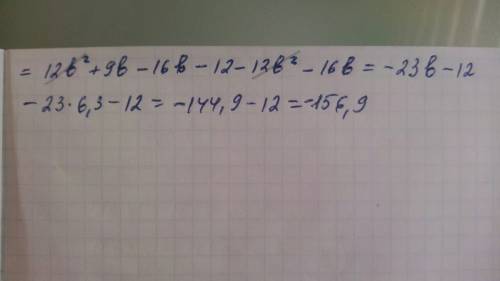 = 12в² + 9в - 16в - 12 - 12в² - 16в = - 23в - 12
- 23 · 6,3 - 12 = - 144,9 - 12 = -156,9